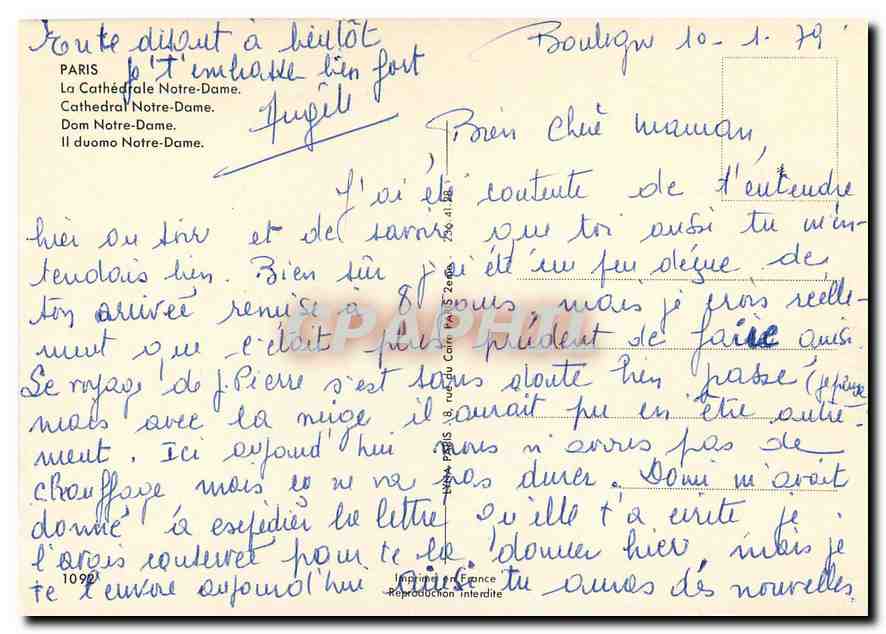 Boulogne 10-1.79
Bien Chère maman,
J'ai été contente de t'entendre
hier au soir et de savoir que toi aussi tu m'en-
tendais bien. Bien sûr j'ai été un peu déçue de
ton arrivée remise à 8 jours mais je crois réelle-
ment que c'était plus prudent de faire ainsi.
Le voyage de J. Pierre s'est sans doute bien passé (je pense
mais avec la neige il aurait pu en être autre-
ment. Ici aujourd'hui nous n'avons pas de
chauffage mais ça ne va pas durer. Domi m'avait
donné à expédier la lettre qu'elle t'a écrite je
l'avais conservée pour te la donner hier, mais je
te l'envoie aujourd'hui ainsi tu auras des nouvelles.
En te disant à bientôt
je t'embrasse bien fort
Angèle
PARIS
La Cathédrale Notre-Dame.
Cathedral Notre-Dame.
Dom Notre-Dame.
Il duomo Notre-Dame.
LYNA PARIS - 8, rue du Caire PARIS 2eme - 236.41.28
1092
Imprimé en France
Reproduction interdite
CPAPHIL